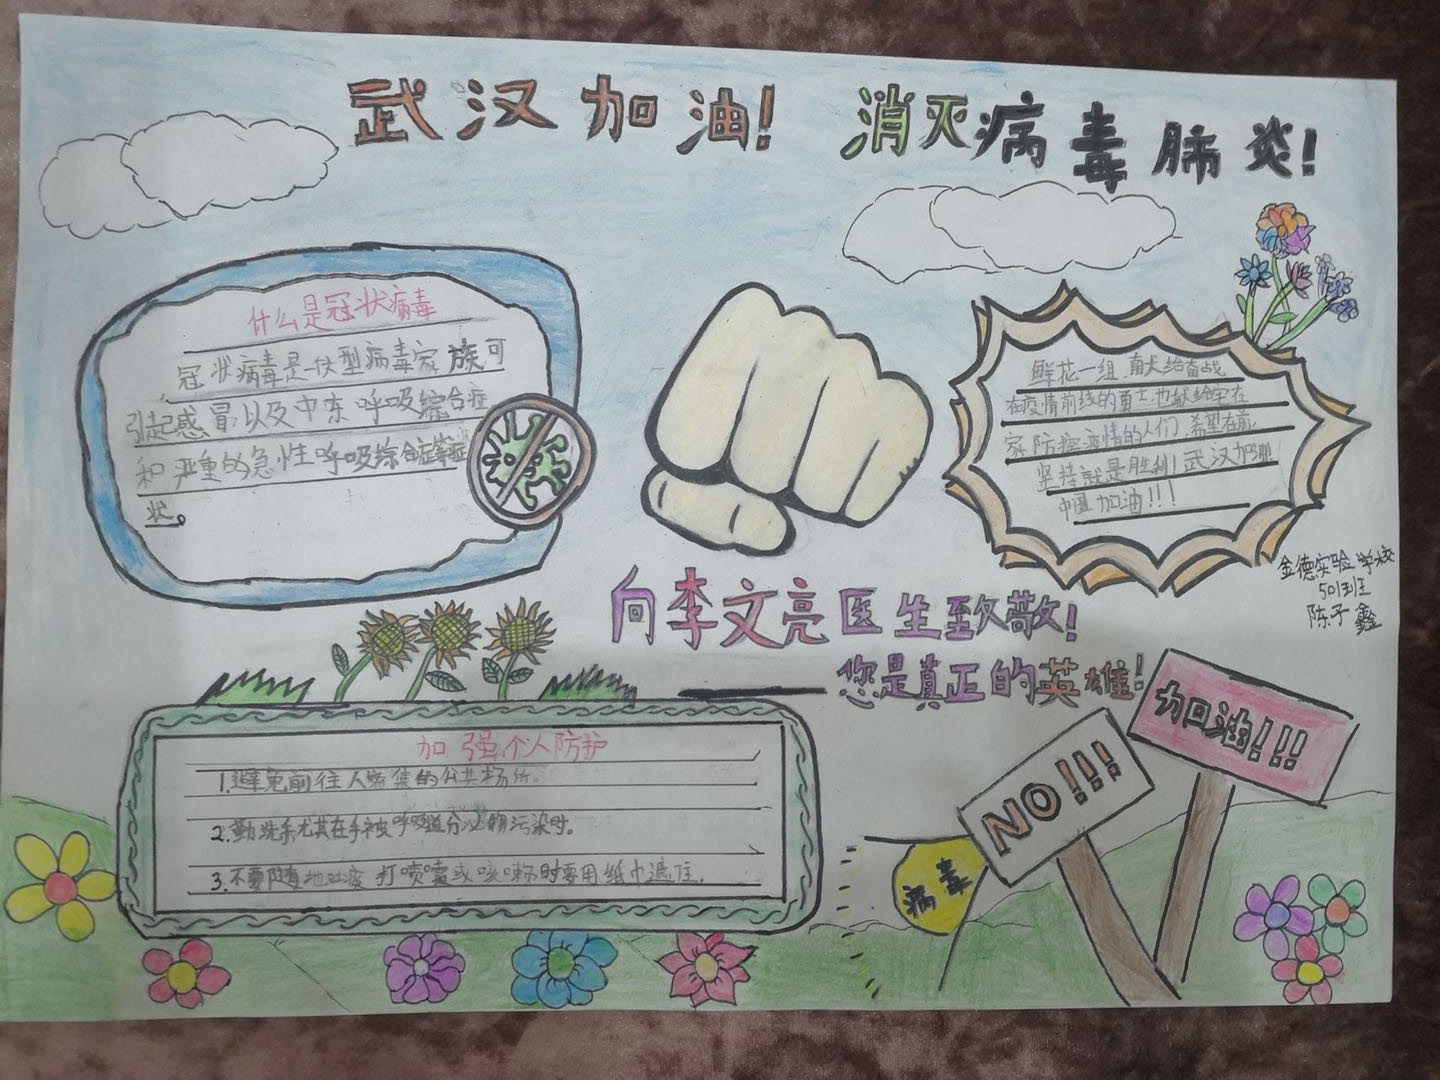 武汉加油! 消灭病毒肺炎!
什么是冠状病毒
冠状病毒是一伏型病毒家族可
引起感冒以及中东呼吸综合症
和严重的急性呼吸综合症等症
状。
鲜花一组,献给奋战
在疫情前线的勇士,也献给宅在
家防控疫情的人们,希望在前
坚持就是胜利!武汉加油!
中国加油!!!
金德实验学校
501班
陈子鑫
向李文亮医生致敬!
您是真正的英雄!
加强个人防护
1.避免前往人密集的公共场所。
2.勤洗手尤其在手被呼吸道分泌物污染时。
3.不要随地吐痰 打喷嚏或咳嗽时要用纸巾遮住.
加油!!!
NO!!!
病毒